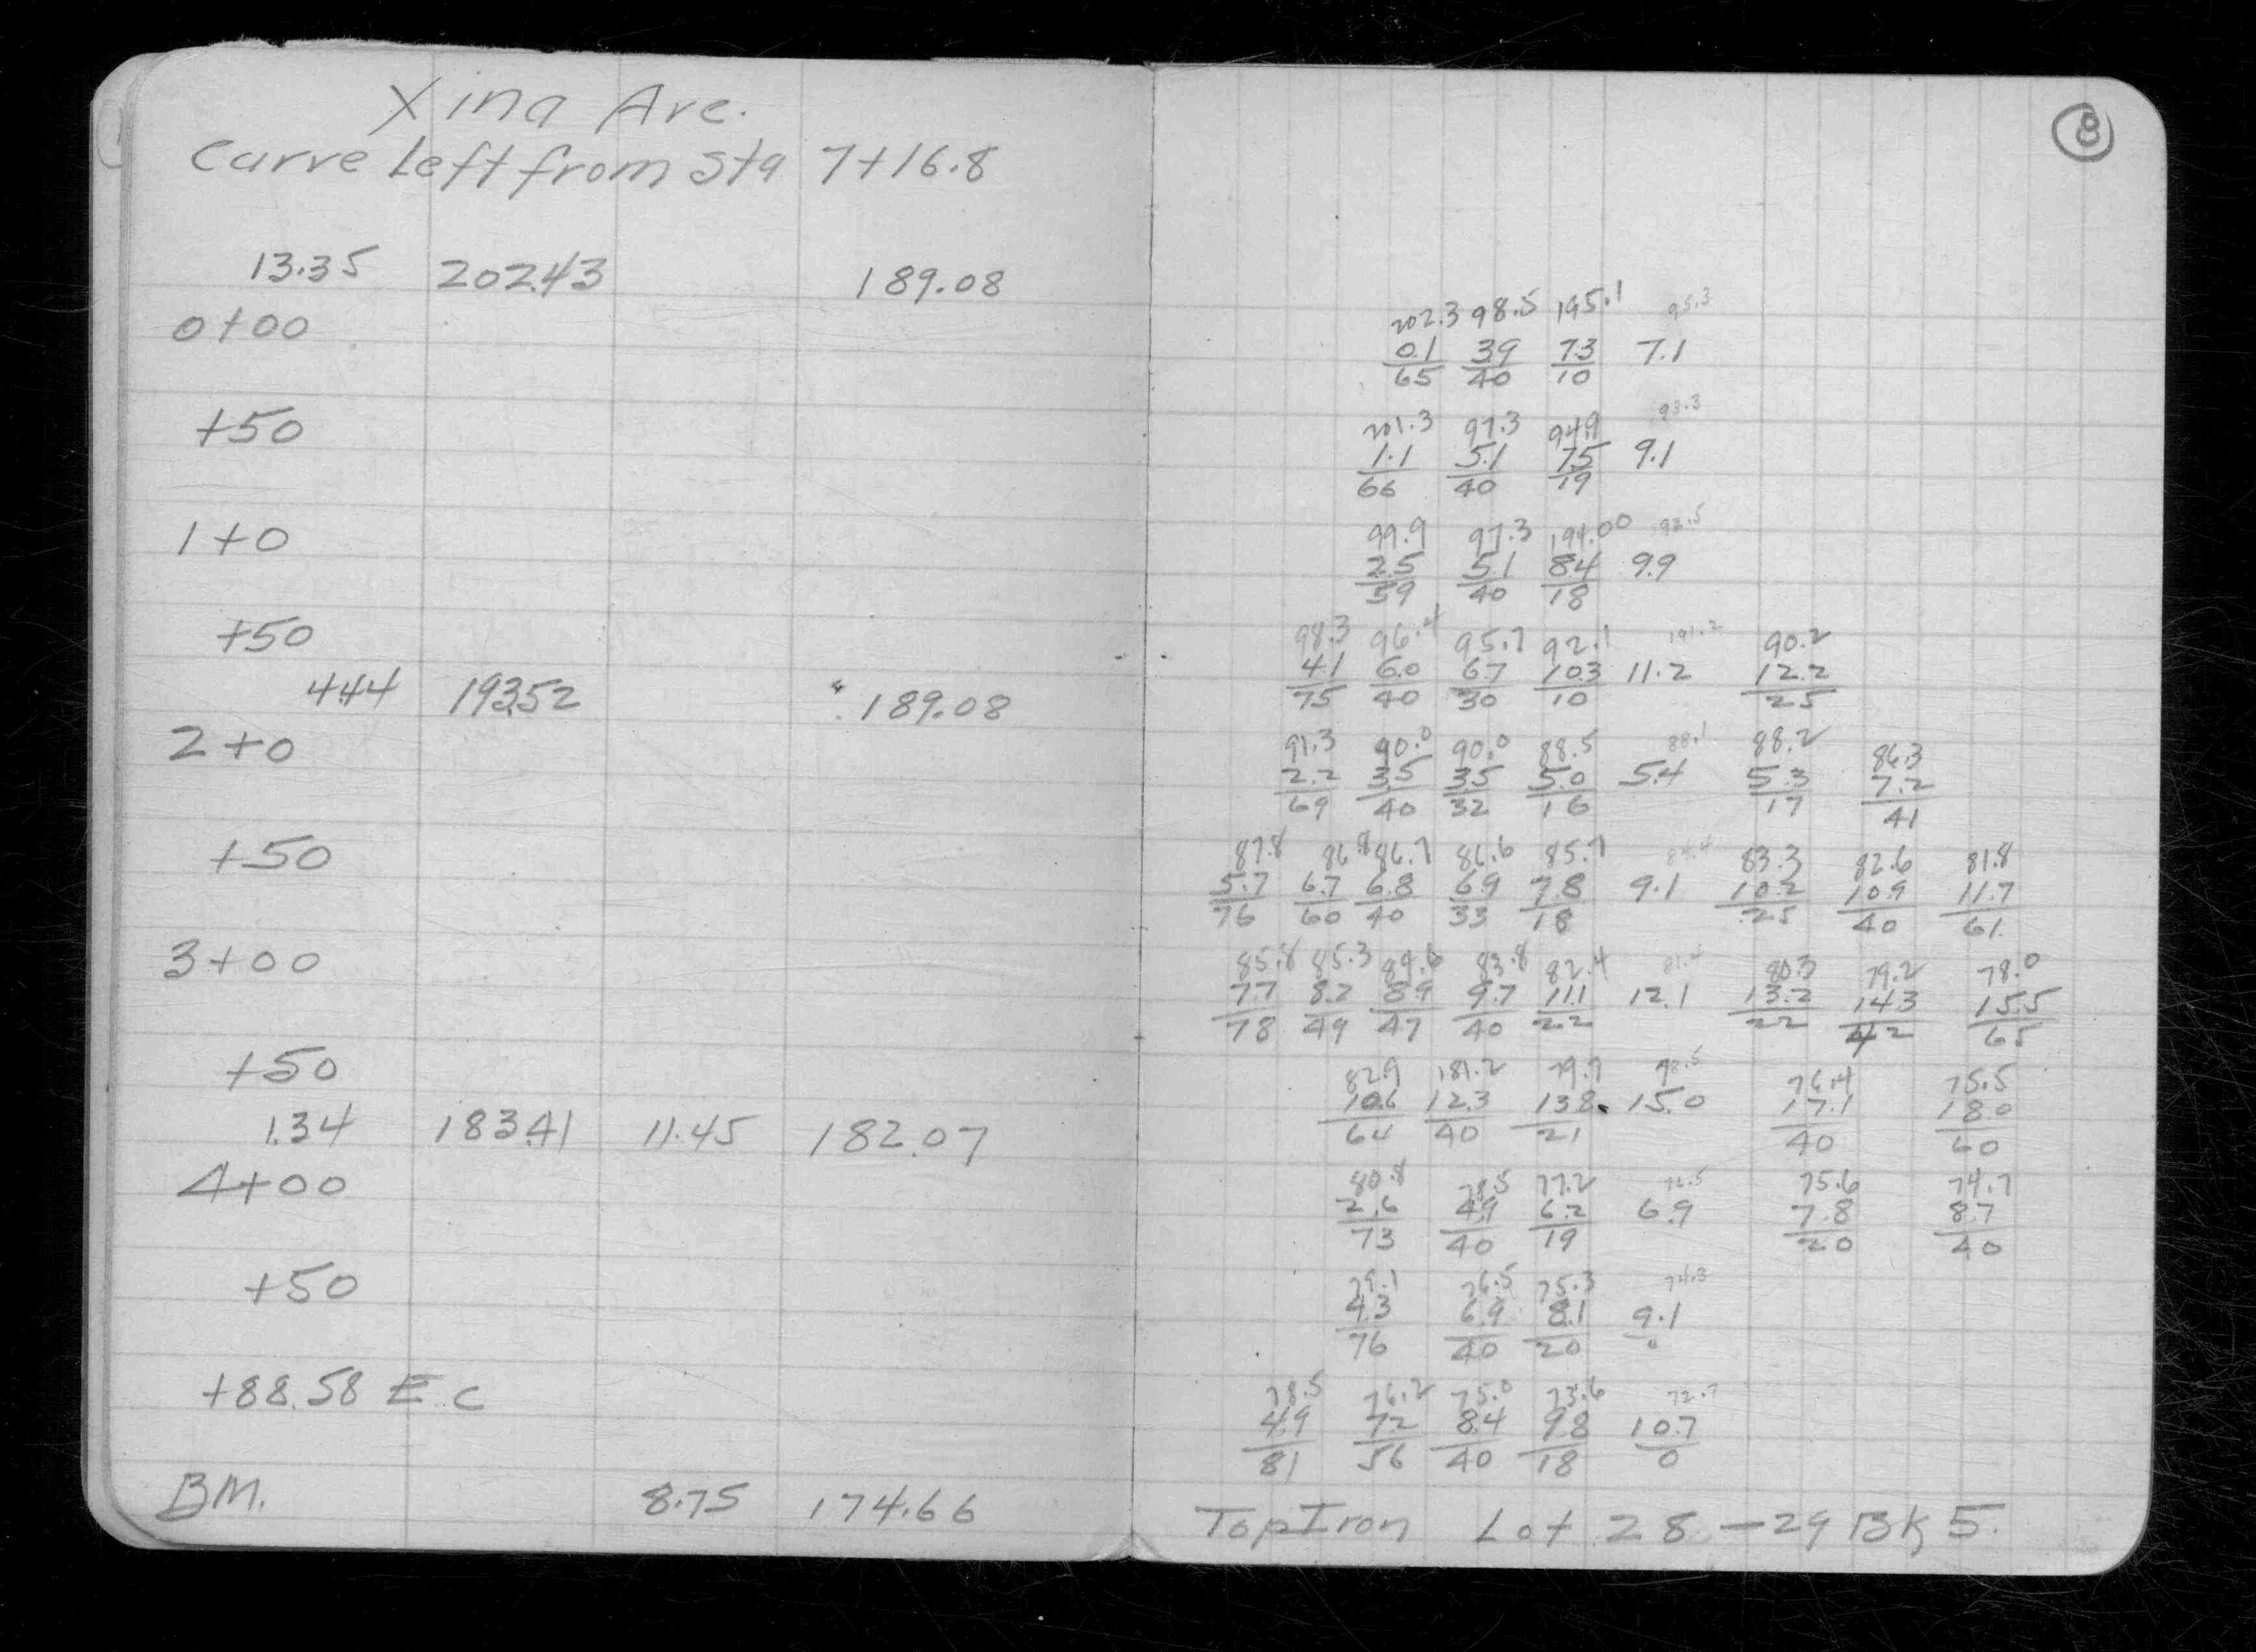 Xina Ave.
Curve Left from Sta 7+16.8
13.35 202.43 189.08
0+00
+50
1+0
+50
4.44 193.52 189.08
2+0
+50
3+00
+50
1.34 183.41 11.45 182.07
4+00
+50
+88.58 E.C
BM. 8.75 174.66
8
202.3 98.5 195.1 95.3
0.1 39 73 7.1
65 40 10
201.3 97.3 94.9 93.3
1.1 5.1 75 9.1
66 40 19
99.9 97.3 194.00 92.5
2.5 5.1 84 9.9
59 40 18
98.3 96.4 95.7 92.1 191.2 90.2
4.1 6.0 6.7 10.3 11.2 12.2
75 40 30 10 25
91.3 90.0 90.0 88.5 88.1 88.2 86.3
2.2 3.5 3.5 5.0 5.4 5.3 7.2
69 40 32 16 17 41
87.8 86.8 86.7 86.6 85.7 84.4 83.3 82.6 81.8
5.7 6.7 6.8 6.9 7.8 9.1 10.2 10.9 11.7
76 60 40 33 18 25 40 61
85.8 85.3 84.6 83.8 82.4 81.4 80.3 79.2 78.0
7.7 8.2 8.9 9.7 11.1 12.1 13.2 14.3 15.5
78 49 47 40 22 22 42 65
82.9 181.2 79.7 78.5 76.4 75.5
10.6 12.3 13.8 15.0 17.1 18.0
64 40 21 40 60
80.8 78.5 77.2 76.5 75.6 74.7
2.6 4.9 6.2 6.9 7.8 8.7
73 40 19 20 40
79.1 76.5 75.3 74.3
4.3 6.9 8.1 9.1
76 40 20 0
78.5 76.2 75.0 73.6 72.7
4.9 7.2 8.4 9.8 10.7
81 56 40 18 0
Top Iron Lot 28-29 Bk 5.